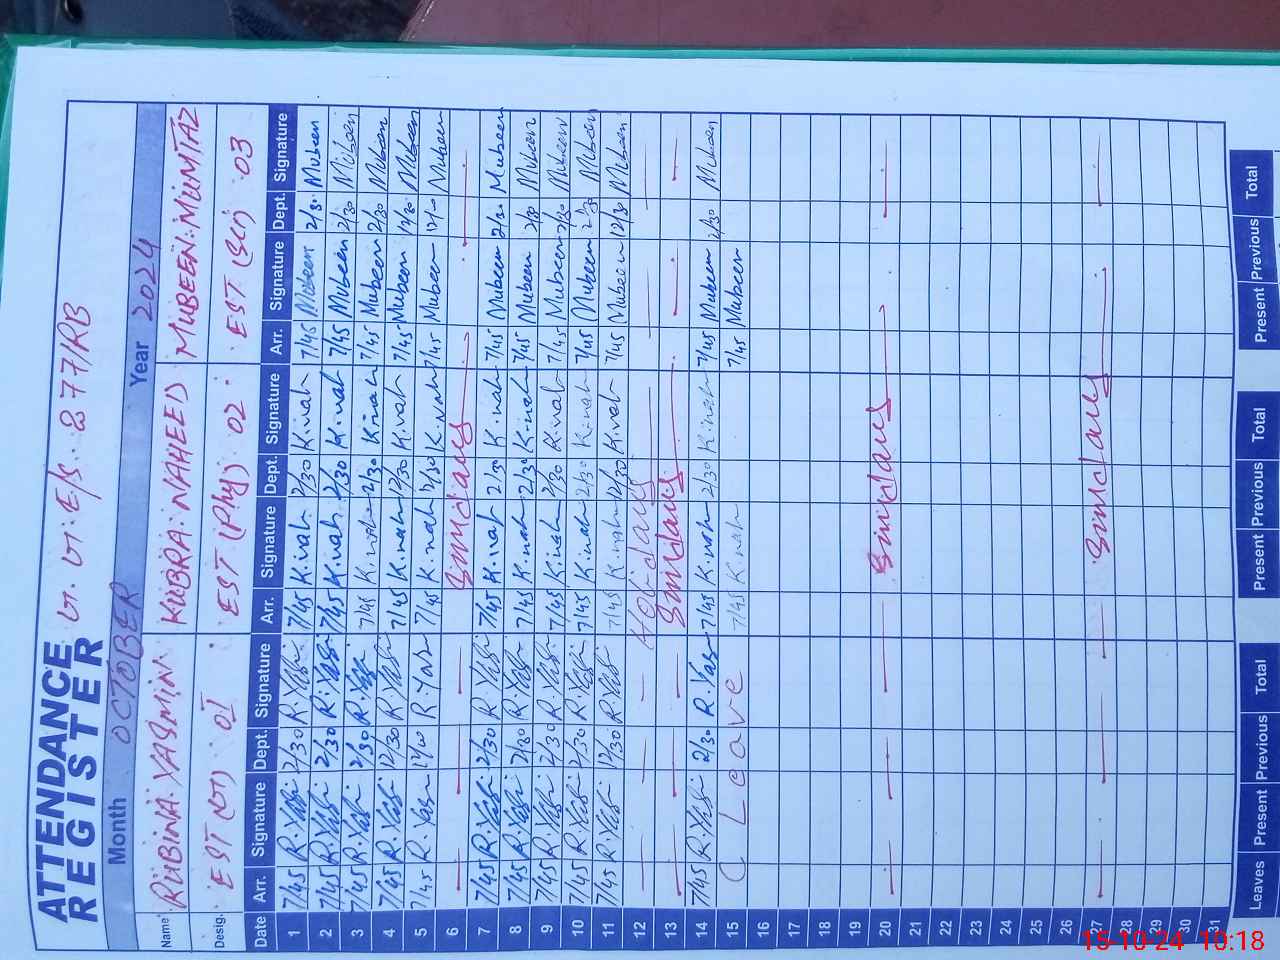 ATTENDANCE
REGISTER
G. G. E/S. 277/RB
Month OCTOBER Year 2024
Name: RUBINA YASMIN KUBRA NAHEED MUBEEN MUMTAZ
Desig. EST 01 EST (Phy) 02 EST (Sci) 03
Date Arr. Signature Dept. Signature Arr. Signature Dept. Signature Arr. Signature Dept. Signature
1 7/45 R.Yasi 2/30 R.Yasi 7/45 K.nah 2/30 K.nah 7/45 Mubeen 2/30 Mubeen
2 7/45 R.Yasi 2/30 R.Yasi 7/45 K.nah 2/30 K.nah 7/45 Mubeen 2/30 Mubeen
3 7/45 R.Yasi 2/30 R.Yasi 7/45 K.nah 2/30 K.nah 7/45 Mubeen 2/30 Mubeen
4 7/45 R.Yasi 12/30 R.Yasi 7/45 K.nah 12/30 K.nah 7/45 Mubeen 12/30 Mubeen
5 7/45 R.Yasi R.Yas 7/45 K.nah K.Nah 7/45 Mubeen Mubeen
6 Sunday
7 7/45 R.Yasi 2/30 R.Yasi 7/45 K.nah 2/30 K.nah 7/45 Mubeen 2/30 Mubeen
8 7/45 R.Yasi 2/30 R.Yasi 7/45 K.nah 2/30 K.nah 7/45 Mubeen 2/30 Mubeen
9 7/45 R.Yasi 2/30 R.Yasi 7/45 K.nah 2/30 K.nah 7/45 Mubeen 2/30 Mubeen
10 7/45 R.Yasi 2/30 R.Yasi 7/45 K.nah 2/30 K.nah 7/45 Mubeen 2/30 Mubeen
11 7/45 R.Yasi 12/30 R.Yasi 7/45 K.nah 12/30 K.nah 7/45 Mubeen 12/30 Mubeen
12 Holiday
13 Sunday
14 7/45 R.Yasi 2/30 R.Yasi 7/45 K.nah 2/30 K.nah 7/45 Mubeen 2/30 Mubeen
15 C Leave 7/45 K.nah 7/45 Mubeen
16
17
18
19
20 Sunday
21
22
23
24
25
26
27 Sunday
28
29
30
31
Leaves Present Previous Total Present Previous Total Present Previous Total
15-10-24 10:18